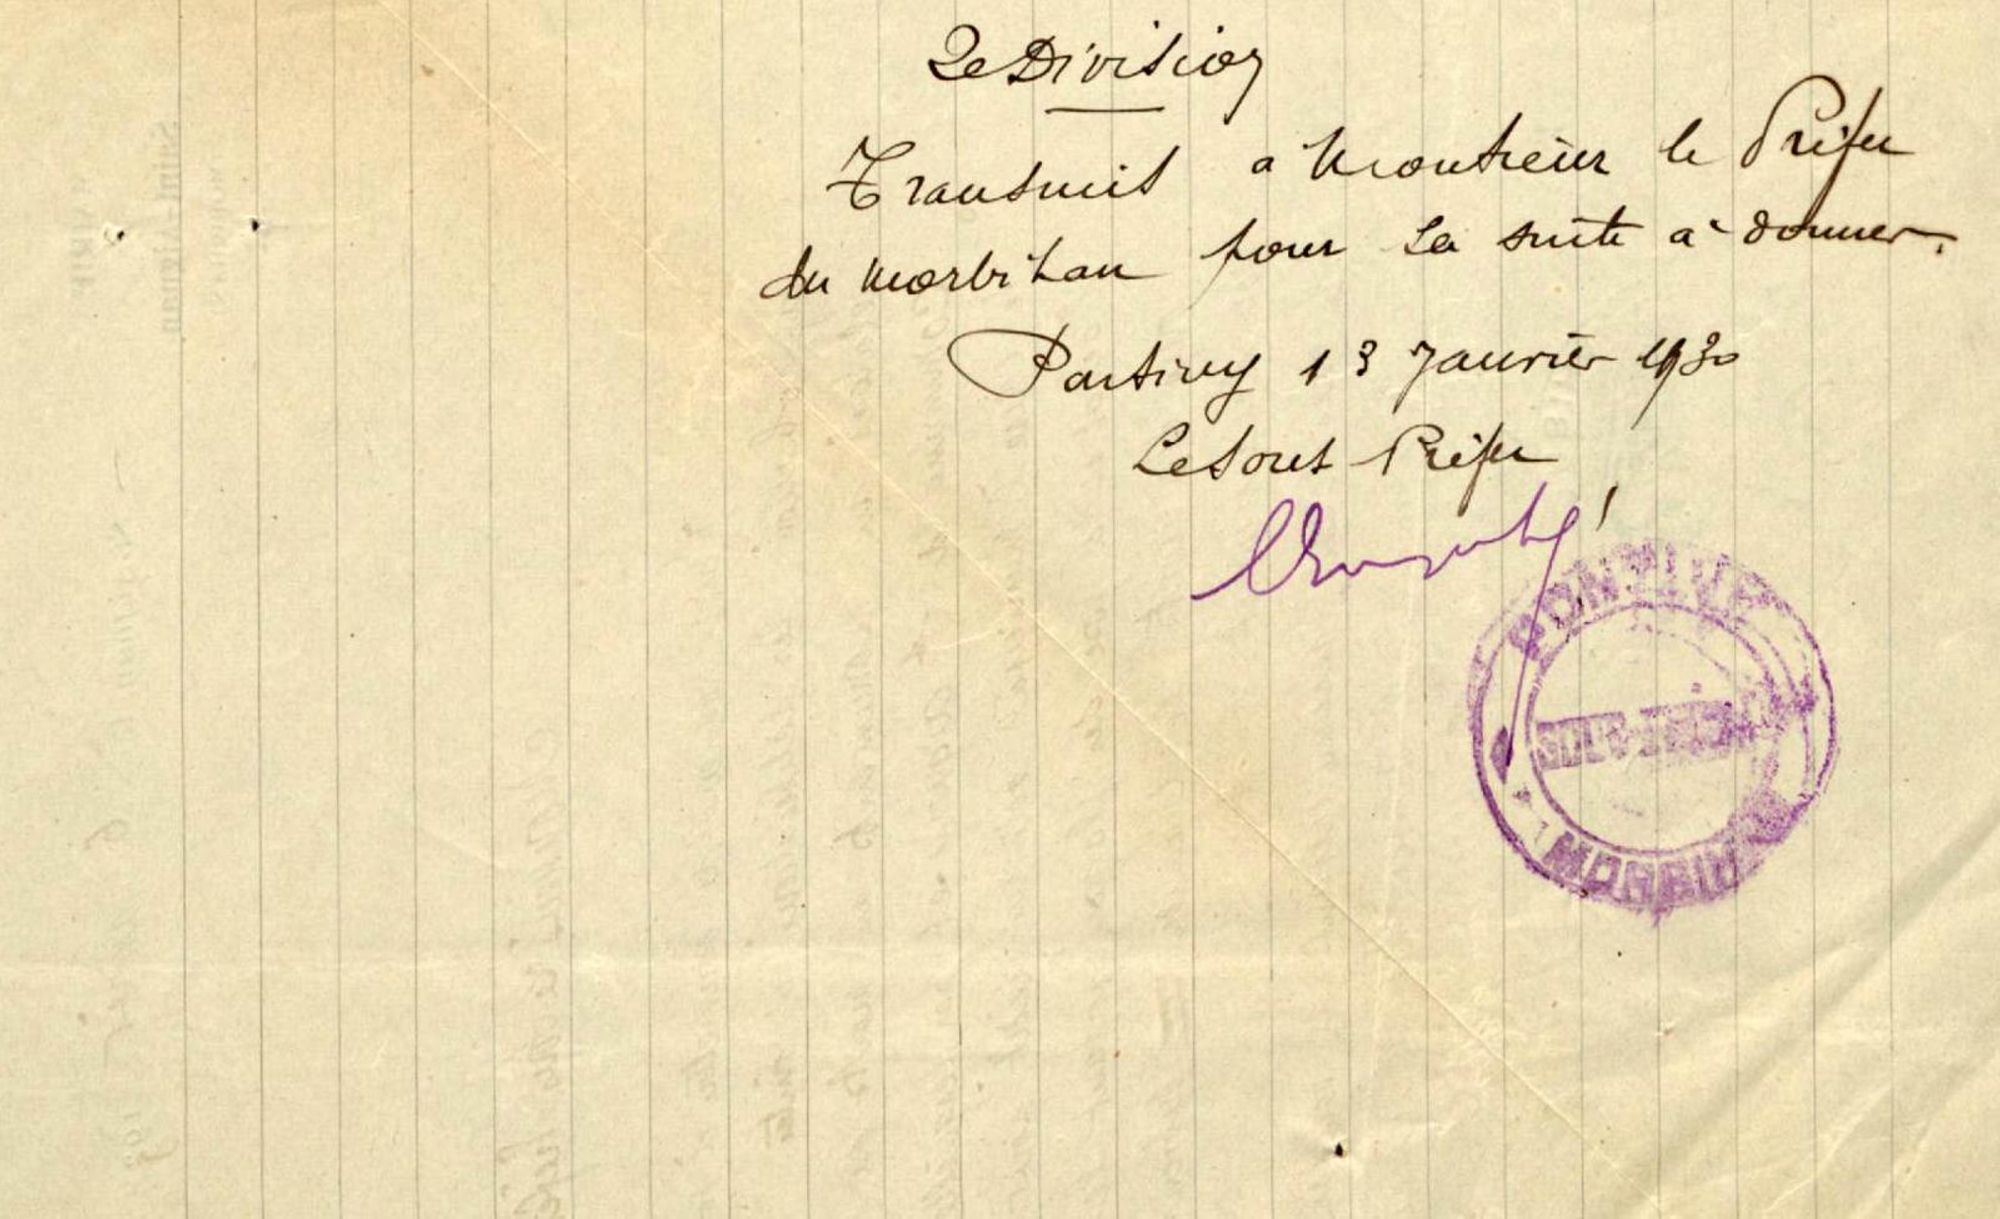 2e Division
Transmis à Monsieur le Préfet
du Morbihan pour la suite à donner.
Pontivy 13 Janvier 1930
Le Sous Préfet
PONTIVY
SOUS-PREFECTURE
MORBIHAN